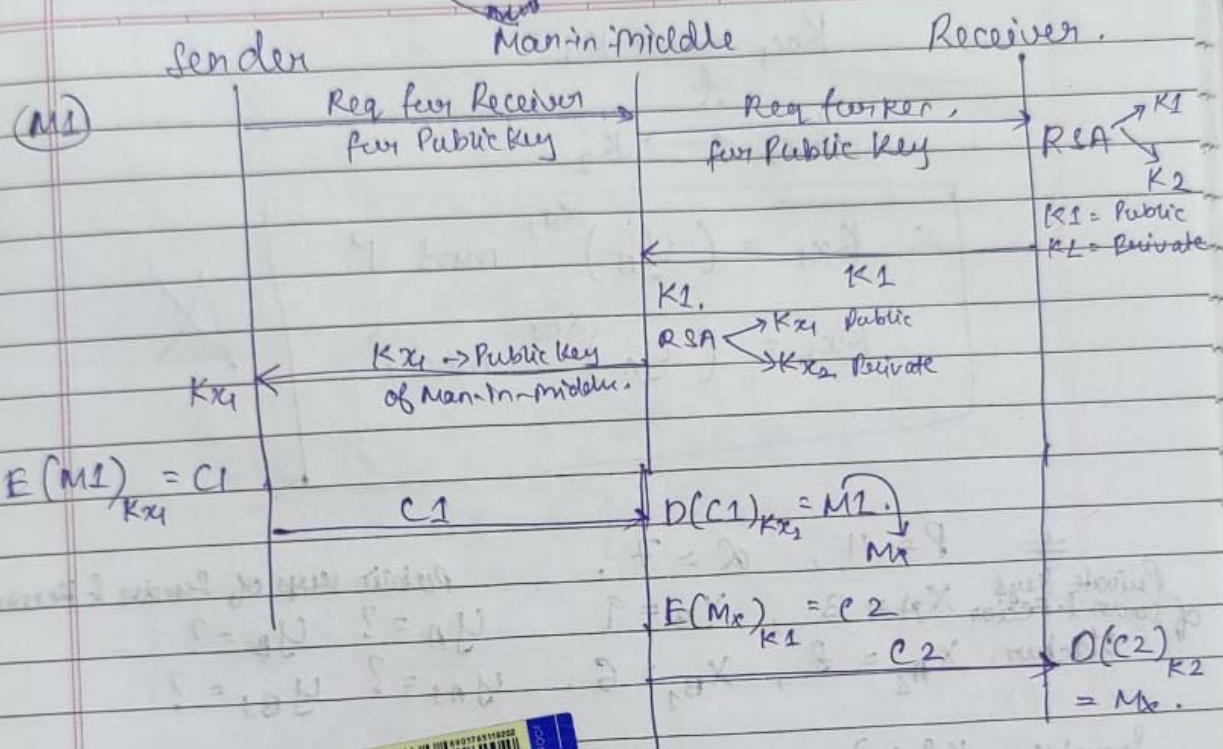 Sender
Man-in-middle
Receiver.
(M1)
Req for Receiver
for Public Key
for Public Key
RSA
K1
K2
K1 = Public
K2 = Private
K1
K1.
RSA
Kx1 Public
Kx2 Private
Kx1 → Public Key
of Man-In-middle.
Kx1
E(M1)Kx1 = C1
C1
D(C1)Kx2 = M1.
Mx
E(Mx)K1 = C2
C2
D(C2)K2
= Mx.